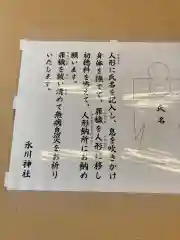 人形に氏名を記入し、息を吹きかけ
身体を撫でて、罪穢を人形に移し
初穂料を添えて、人形納所にお納め
願います。
罪穢を祓い清めて無病息災をお祈り
いたします。
氷川神社
氏名